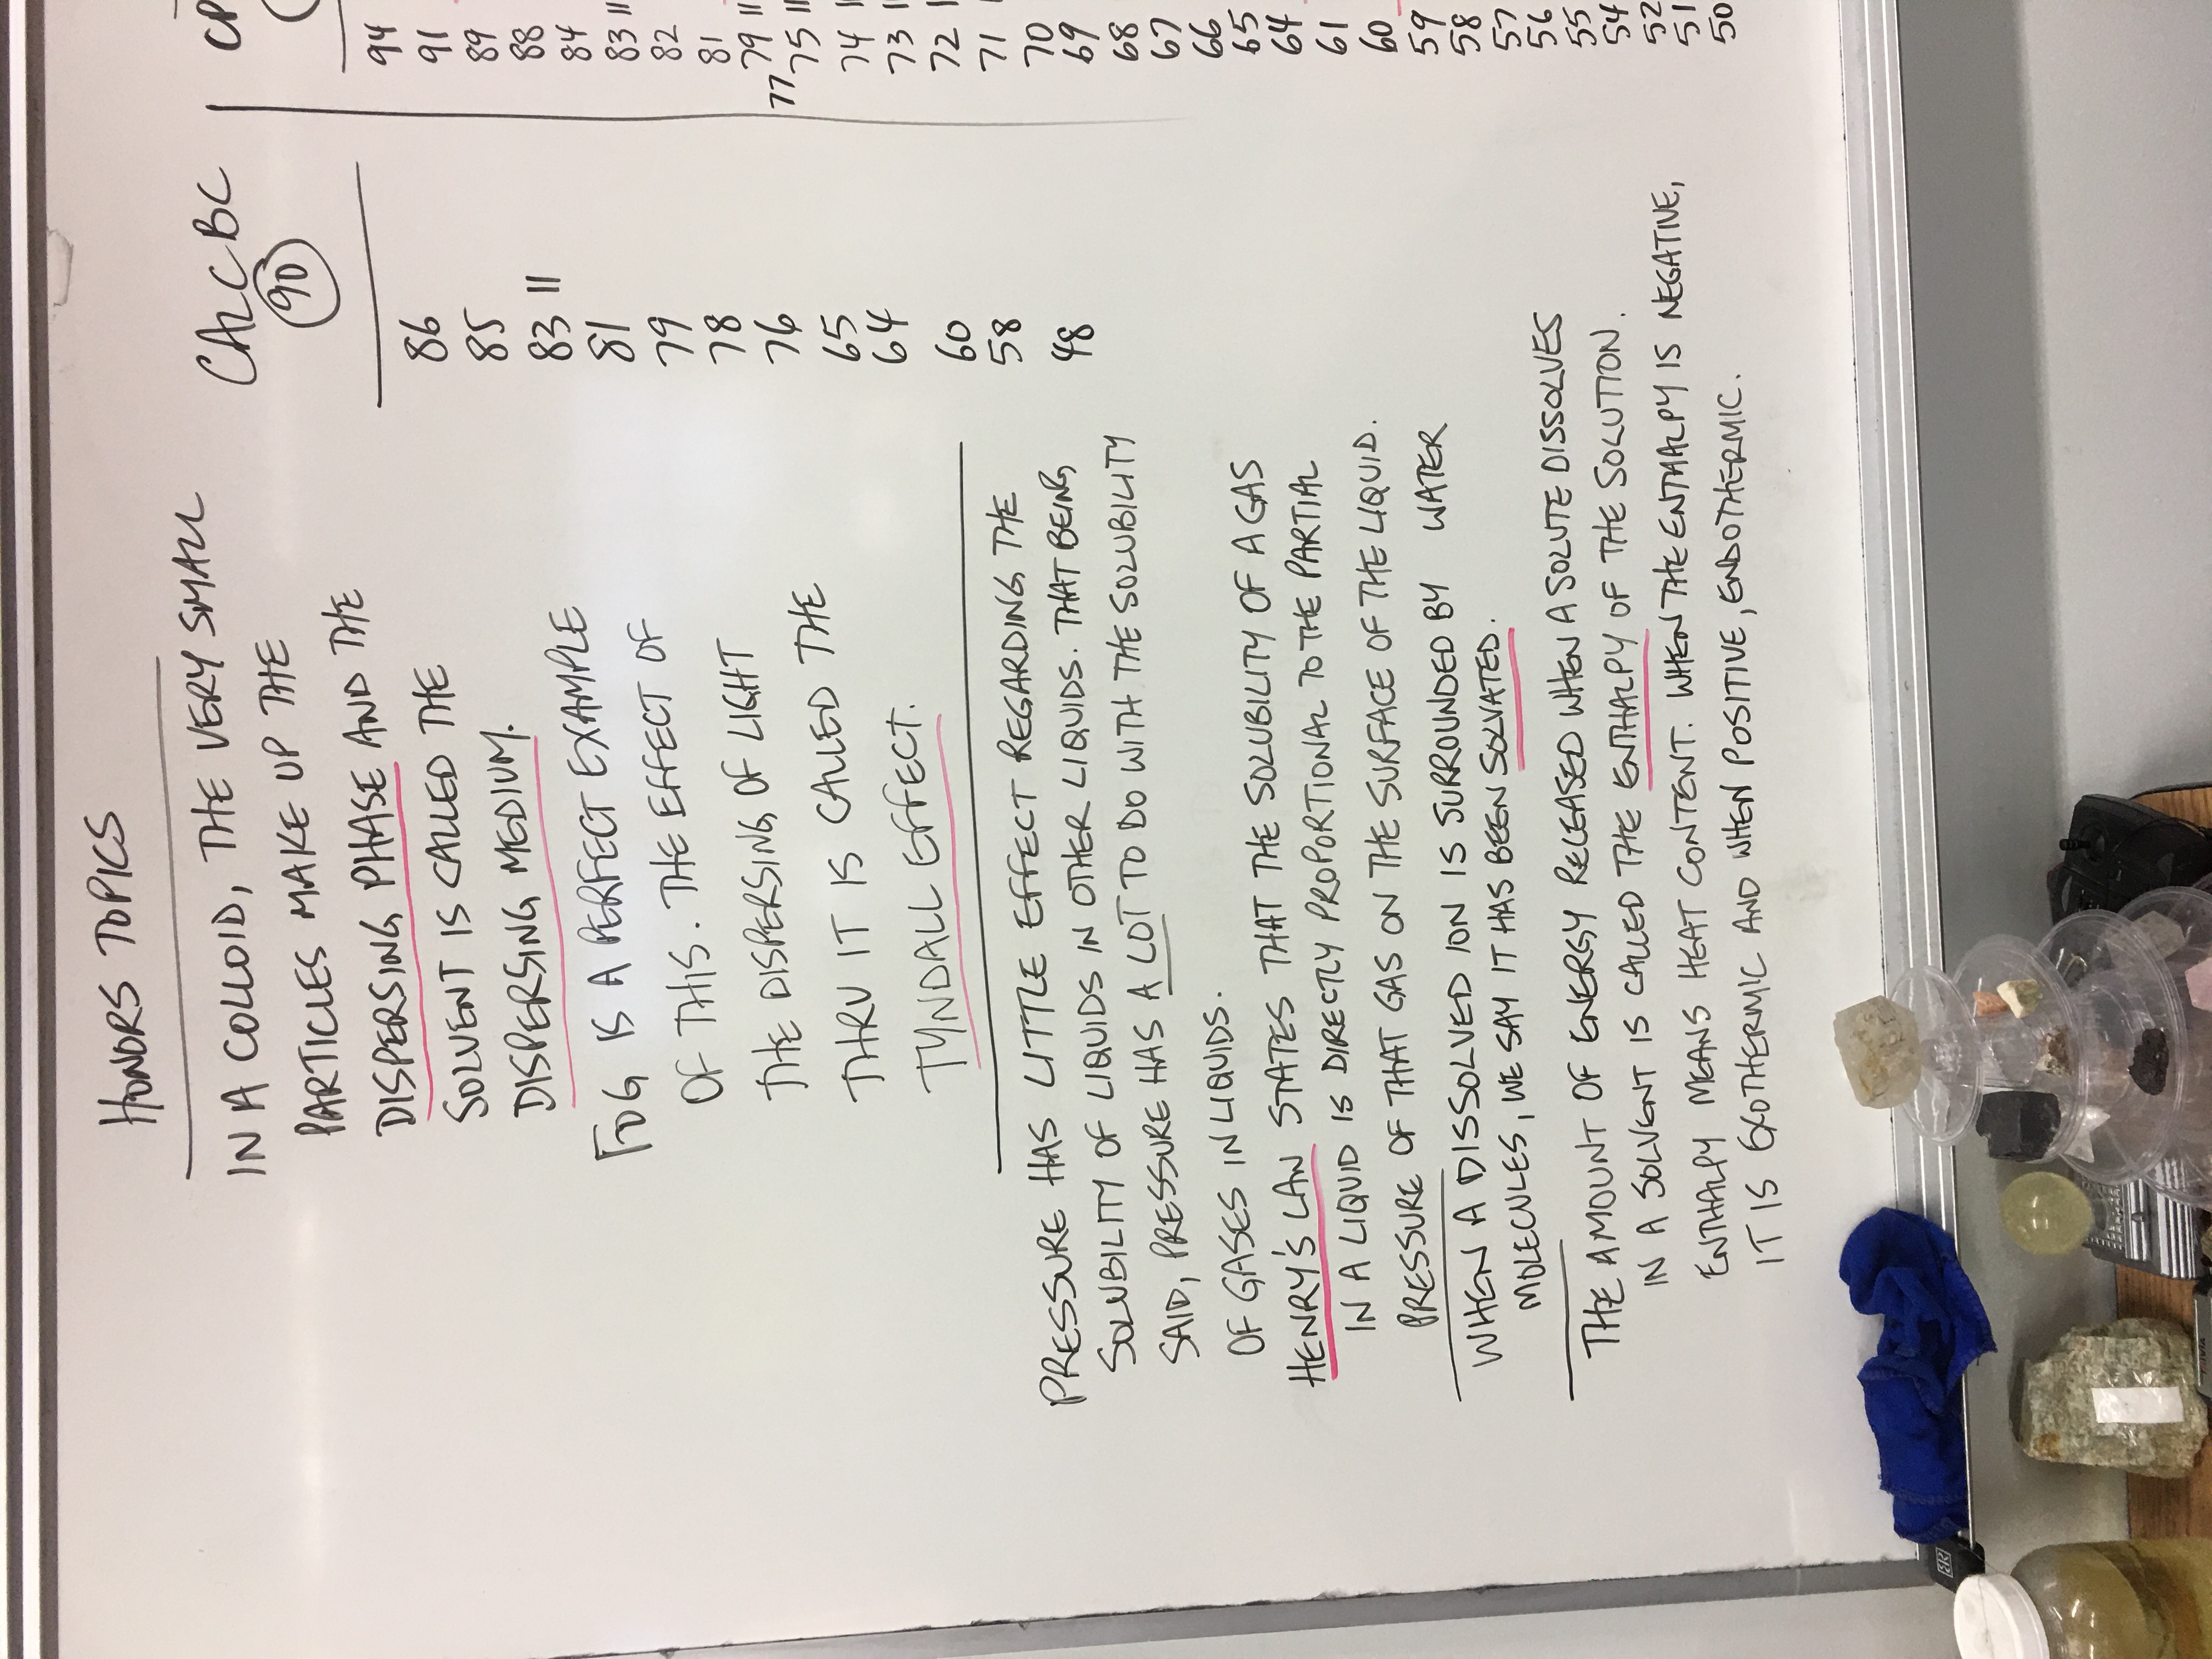 HONORS TOPICS
IN A COLLOID, THE VERY SMALL
PARTICLES MAKE UP THE
DISPERSING PHASE AND THE
SOLVENT IS CALLED THE
DISPERSING MEDIUM.
FOG IS A PERFECT EXAMPLE
OF THIS. THE EFFECT OF
THE DISPERSING OF LIGHT
THRU IT IS CALLED THE
TYNDALL EFFECT.
PRESSURE HAS LITTLE EFFECT REGARDING THE
SOLUBILITY OF LIQUIDS IN OTHER LIQUIDS. THAT BEING
SAID, PRESSURE HAS A LOT TO DO WITH THE SOLUBILITY
OF GASES IN LIQUIDS.
HENRY'S LAW STATES THAT THE SOLUBILITY OF A GAS
IN A LIQUID IS DIRECTLY PROPORTIONAL TO THE PARTIAL
PRESSURE OF THAT GAS ON THE SURFACE OF THE LIQUID.
WHEN A DISSOLVED ION IS SURROUNDED BY WATER
MOLECULES, WE SAY IT HAS BEEN SOLVATED.
THE AMOUNT OF ENERGY RELEASED WHEN A SOLUTE DISSOLVES
IN A SOLVENT IS CALLED THE ENTHALPY OF THE SOLUTION.
ENTHALPY MEANS HEAT CONTENT. WHEN THE ENTHALPY IS NEGATIVE,
IT IS EXOTHERMIC AND WHEN POSITIVE, ENDOTHERMIC.
CALC BC
90
86
85
83 ||
81
79
78
76
65
64
60
58
48
CP
94
91
89
88
84
83 ||
82
81
79 ||
77
75 ||
74
73
72
71
70
69
68
67
66
65
64
61
60
59
58
57
56
55
54
52
51
50